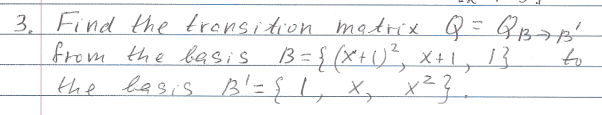 3. Find the transition matrix Q = Q_{B→B'}
from the basis B = { (x+1)², x+1, 1 } to
the basis B' = { 1, x, x² }.